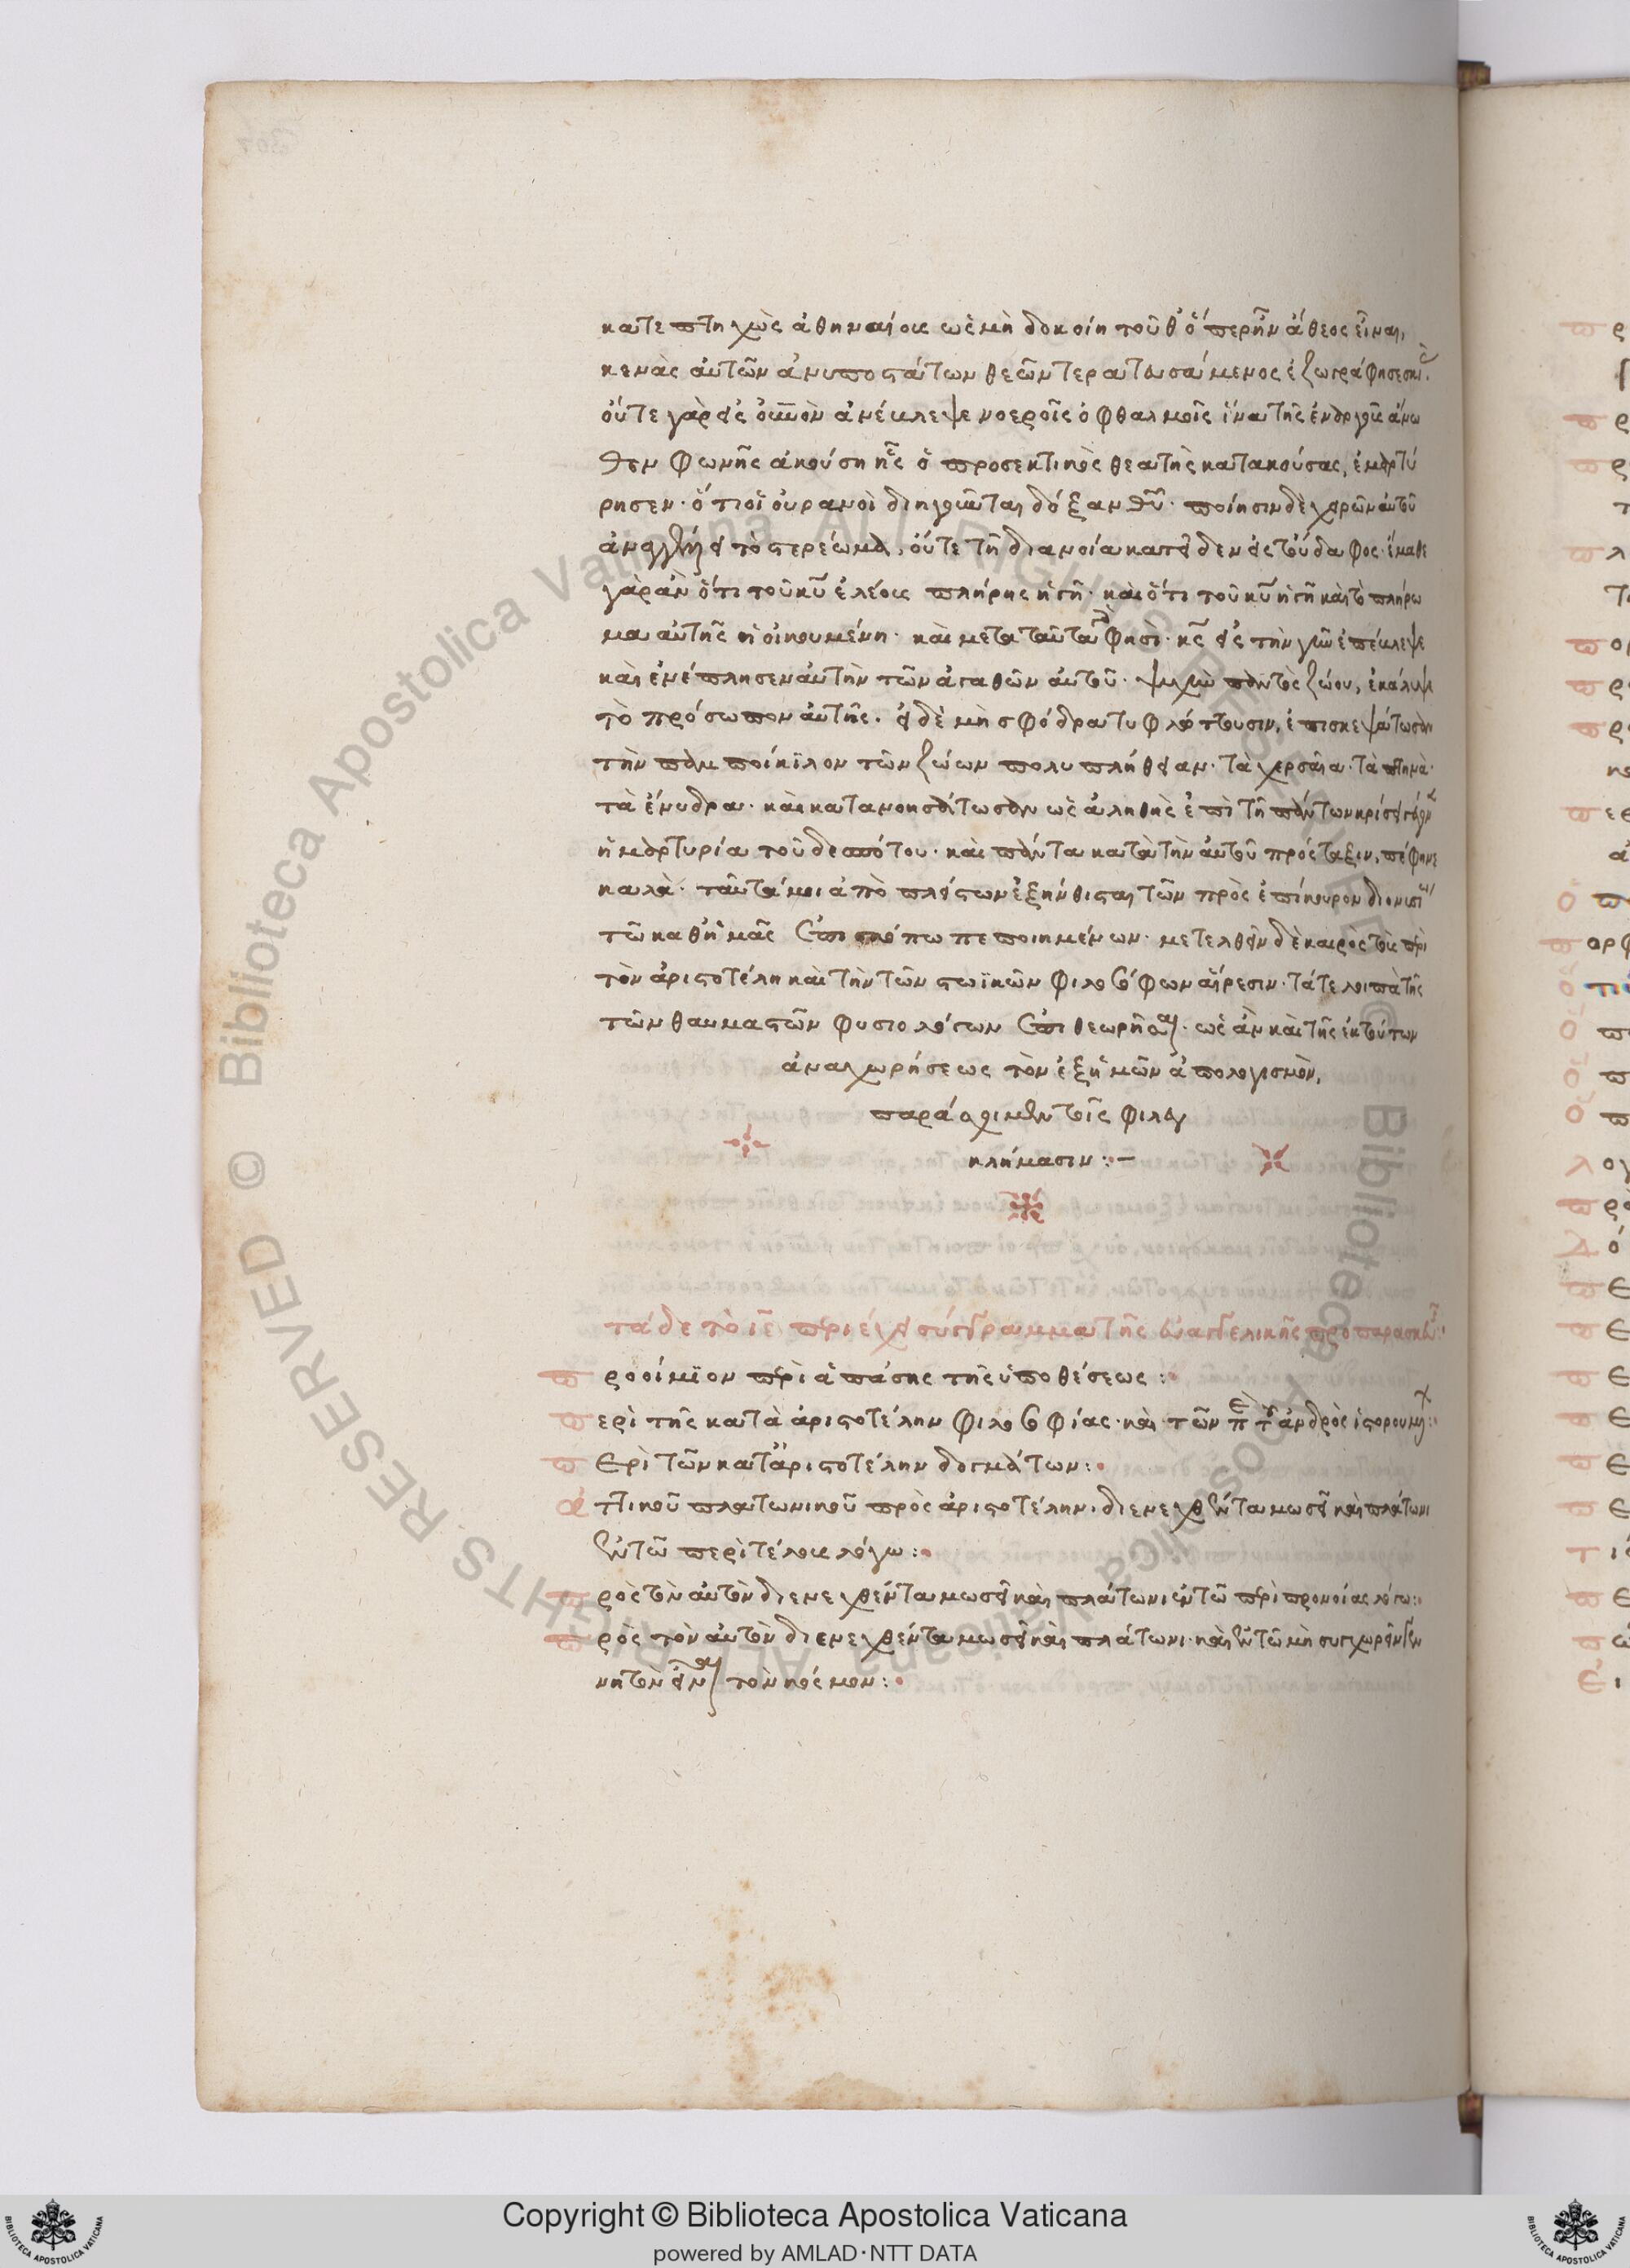 κατεπτηχὼς ἀθηναίους ὡς μὴ δοκοίη τοῦθ' ὅπερ ἦν ἄθεος εἶναι,
κενὰς αὐτῶν ἀνυποστάτων θεῶν τερατευσάμενος ἐζωγράφησε σκι
οὔτε γὰρ εἰς οὐνὸν ἀνέκλεψε νοεροῖς ὀφθαλμοῖς ἵνα τῆς ἐναργοῦς ἄνω
θεν φωνῆς ἀκούση ἧς ὁ προσεκτικὸς θεατὴς κατακούσας, ἐμαρτύ
ρησεν· ὅτι οἱ οὐρανοὶ διηγοῦνται δόξαν θῦ· ποίησιν δὲ χειρῶν αὐτοῦ
ἀναγγέλλει τὸ στερέωμα. οὔτε τῆ διανοία κατεῖδεν εἰς τοὔδαφος· ἔμαθε
γὰρ ἂν ὅτι τοῦ κῦ ἐλέους πλήρης ἡ γῆ· καὶ ὅτι τοῦ κῦ ἡ γῆ καὶ τὸ πλήρω
μα αὐτῆς ἡ οἰκουμένη· καὶ μετὰ ταῦτα φησὶ· κς εἰς τὴν γῆν ἐπέκλεψε
καὶ ἐνέπλησεν αὐτὴν τῶν ἀγαθῶν αὐτοῦ· ψυχὴ παντὸς ζώου, ἐκάλυψε
τὸ πρόσωπον αὐτῆς. εἰ δὲ μὴ σφόδρα τυφλόττουσιν, ἐπισκεψάτωσαν
τὴν παμποίκιλον τῶν ζώων πολυπλήθειαν· τὰ χερσαῖα· τὰ πτηνὰ·
τὰ ἔνυδρα· καὶ κατανοησάτωσαν ὡς ἀληθὴς ἐπὶ τῆ πάντων κρίσει γέγον
ἡ μαρτυρία τοῦ δεσπότου· καὶ πάντα κατὰ τὴν αὐτοῦ πρόσταξιν, πέφηνε
καλὰ· ταῦτά μοι ἀπὸ πλείστων ἐξήνθισται τῶν πρὸς ἐπίκουρον διονυσί
τῶ καθ' ἡμᾶς ἐπισκόπω πεποιημένων· μετελθεῖν δὲ καιρὸς τοὺς περὶ
τὸν ἀριστοτέλη καὶ τὴν τῶν στωϊκῶν φιλοσόφων αἵρεσιν· τά τε λοιπὰ τῆς
τῶν θαυμαστῶν φυσιολόγων ἐπιθεωρῆσαι· ὡς ἂν καὶ τῆς ἐκ τούτων
ἀναχωρήσεως τὸν ἐξ ἡμῶν ἀπολογισμὸν,
παράσχοιμεν τοῖς φιλεγ
κλήμασιν :-
τάδε τὸ ιε περιέχει σύγγραμμα τῆς εὐαγγελικῆς προπαρασκευῆς :
προοίμϊον περὶ ἁπάσης τῆς ὑποθέσεως :
περὶ τῆς κατὰ ἀριστοτέλην φιλοσοφίας· καὶ τῶν πε τοῦ ἀνδρὸς ἱστορουμέν :
περὶ τῶν κατ' ἀριστοτέλην δογμάτων :
ἀττικοῦ πλατωνικοῦ πρὸς ἀριστοτέλην. διενεχθέντα μωσεῖ καὶ πλάτωνι
ἐν τῶ περὶ τέλους λόγω :
πρὸς τὸν αὐτὸν διενεχθέντα μωσεῖ καὶ πλάτωνι ἐν τῶ περὶ προνοίας λόγω :
πρὸς τὸν αὐτὸν διενεχθέντα μωσεῖ καὶ πλάτωνι· καὶ ἐν τῶ μὴ συγχωρεῖν γεν
νητὸν εἶναι τὸν κόσμον :
Copyright © Biblioteca Apostolica Vaticana
powered by AMLAD·NTT DATA